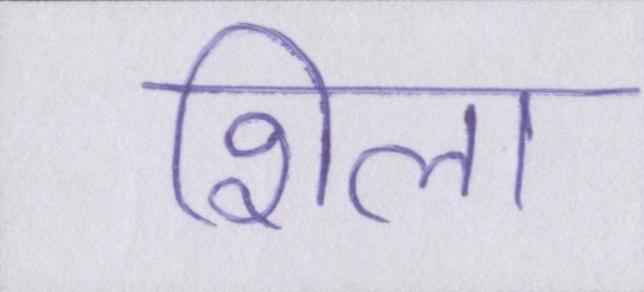 शिला